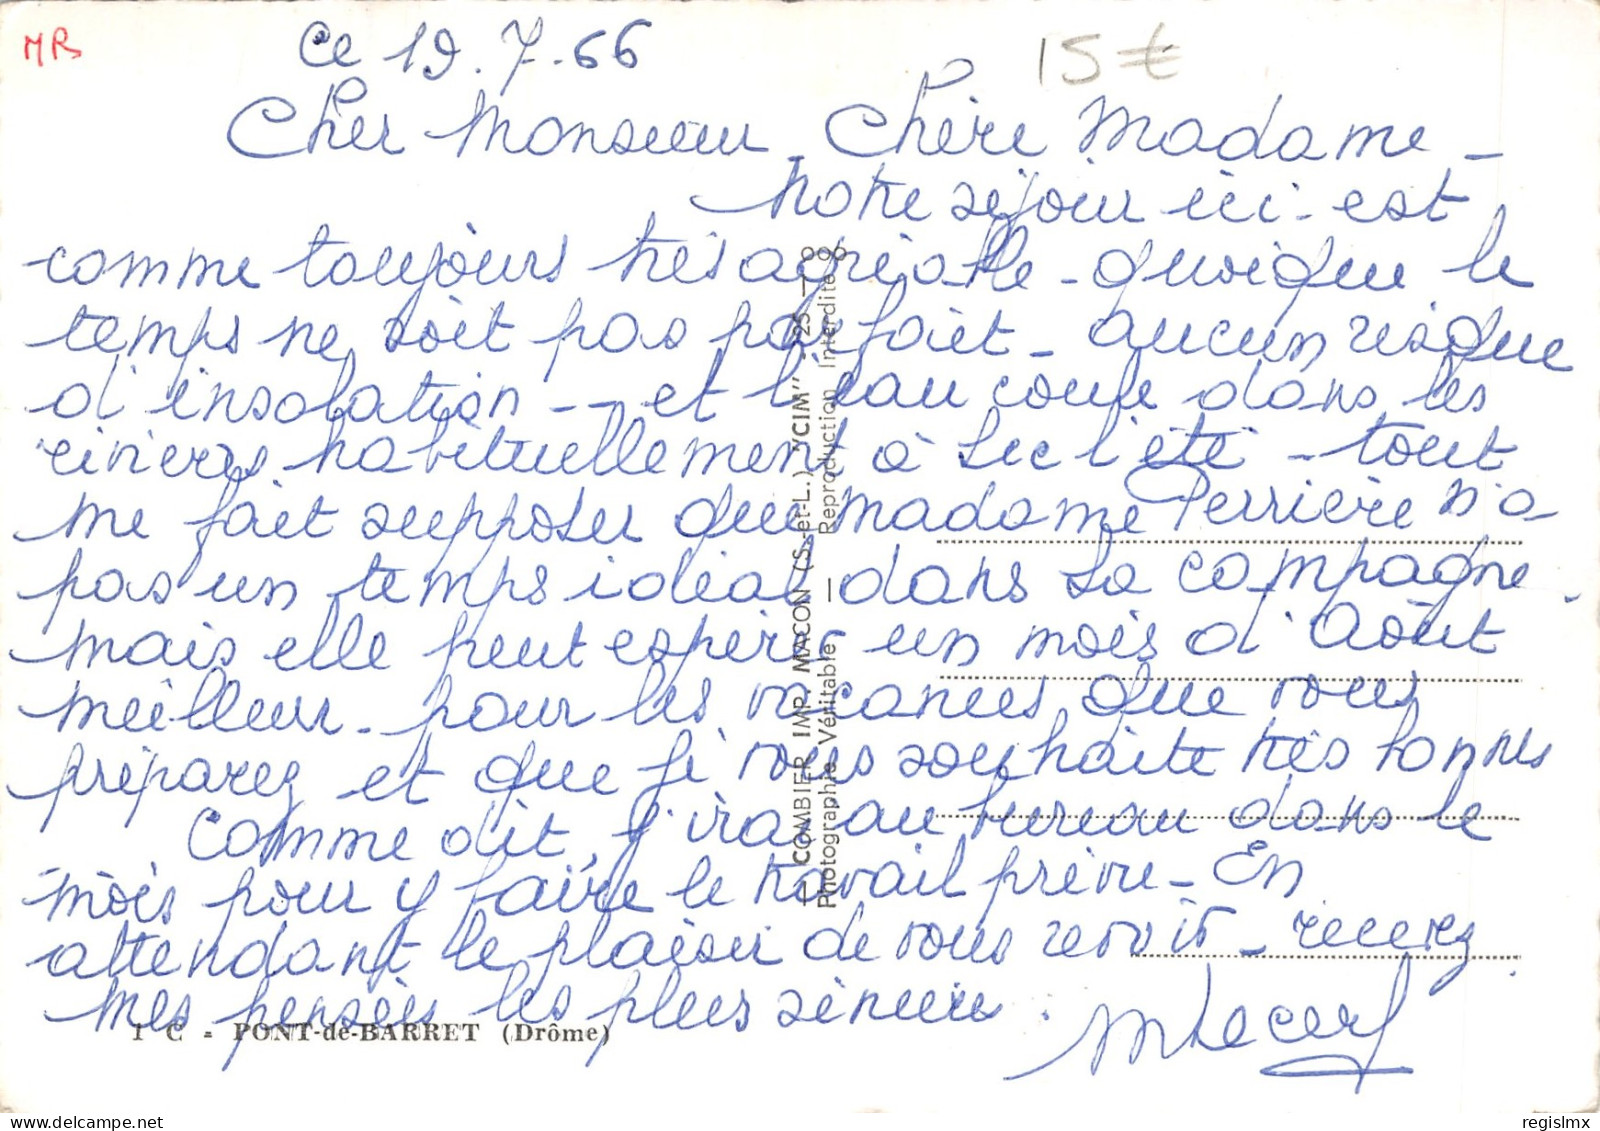 MB
Ce 19.7.66
15 €
Cher Monsieur, Chère Madame -
Notre séjour ici - est
comme toujours très agréable - quoique le
temps ne soit pas parfait - aucun risque
d'insolation -- et l'eau coule dans les
rivières habituellement à sec l'été - tout
me fait supposer que madame Perrière n'a
pas un temps idéal dans sa campagne -
mais elle peut espérer un mois d'Août
meilleur - pour les vacances que vous
préparez et que je vous souhaite très bonnes
Comme dit, j'irai au bureau dans le
mois pour y faire le travail prévu - En
attendant le plaisir de vous revoir - recevez
mes pensées les plus sincères.
MLecerf
1 C - PONT-de-BARRET (Drôme)
— COMBIER IMP. MACON (S.-et-L.) "CIM"
Photographie Véritable — Reproduction Interdite
regislmx